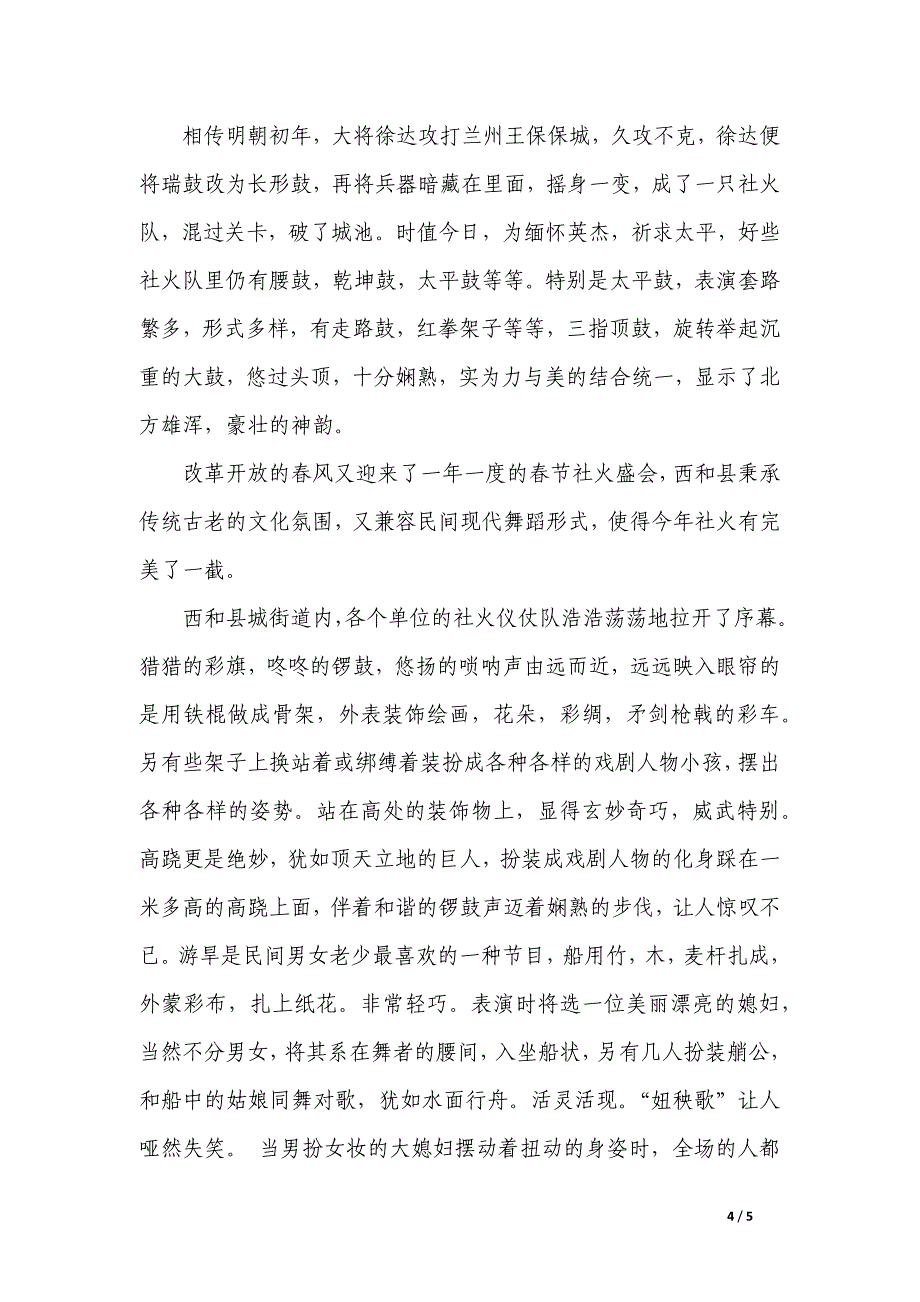 相传明朝初年，大将徐达攻打兰州王保保城，久攻不克，徐达便
将瑞鼓改为长形鼓，再将兵器暗藏在里面，摇身一变，成了一只社火
队，混过关卡，破了城池。时值今日，为缅怀英杰，祈求太平，好些
社火队里仍有腰鼓，乾坤鼓，太平鼓等等。特别是太平鼓，表演套路
繁多，形式多样，有走路鼓，红拳架子等等，三指顶鼓，旋转举起沉
重的大鼓，悠过头顶，十分娴熟，实为力与美的结合统一，显示了北
方雄浑，豪壮的神韵。
改革开放的春风又迎来了一年一度的春节社火盛会，西和县秉承
传统古老的文化氛围，又兼容民间现代舞蹈形式，使得今年社火有完
美了一截。
西和县城街道内，各个单位的社火仪仗队浩浩荡荡地拉开了序幕。
猎猎的彩旗，咚咚的锣鼓，悠扬的唢呐声由远而近，远远映入眼帘的
是用铁棍做成骨架，外表装饰绘画，花朵，彩绸，矛剑枪戟的彩车。
另有些架子上换站着或绑缚着装扮成各种各样的戏剧人物小孩，摆出
各种各样的姿势。站在高处的装饰物上，显得玄妙奇巧，威武特别。
高跷更是绝妙，犹如顶天立地的巨人，扮装成戏剧人物的化身踩在一
米多高的高跷上面，伴着和谐的锣鼓声迈着娴熟的步伐，让人惊叹不
已。游旱是民间男女老少最喜欢的一种节目，船用竹，木，麦杆扎成，
外蒙彩布，扎上纸花。非常轻巧。表演时将选一位美丽漂亮的媳妇，
当然不分男女，将其系在舞者的腰间，入坐船状，另有几人扮装艄公，
和船中的姑娘同舞对歌，犹如水面行舟。活灵活现。“妞秧歌”让人
哑然失笑。 当男扮女妆的大媳妇摆动着扭动的身姿时，全场的人都
4 / 5